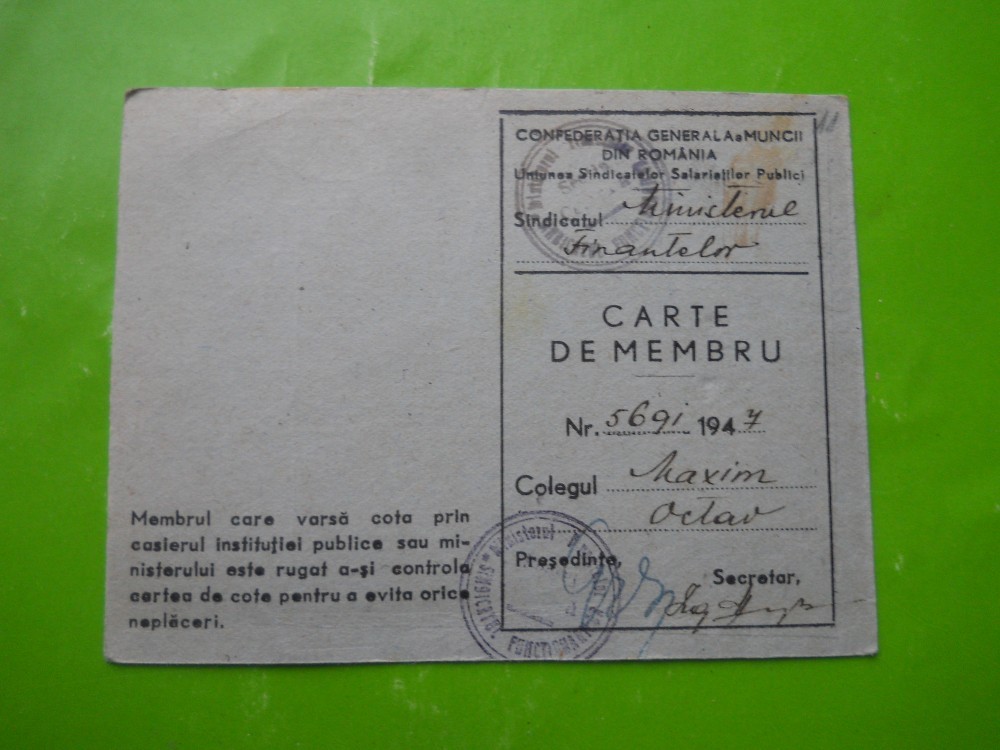 Membrul care varsă cota prin
casierul instituției publice sau mi-
nisterului este rugat a-și controla
cartea de cote pentru a evita orice
neplăceri.
CONFEDERAȚIA GENERALA a MUNCII
DIN ROMÂNIA
Uniunea Sindicatelor Salariaților Publici
Sindicatul Ministerul
Finantelor
CARTE
DE MEMBRU
Nr. 5691 1947
Colegul Maxim
Octav
Președinte,
Secretar,
SINDICATUL FUNCTIONARILOR
Ministerul